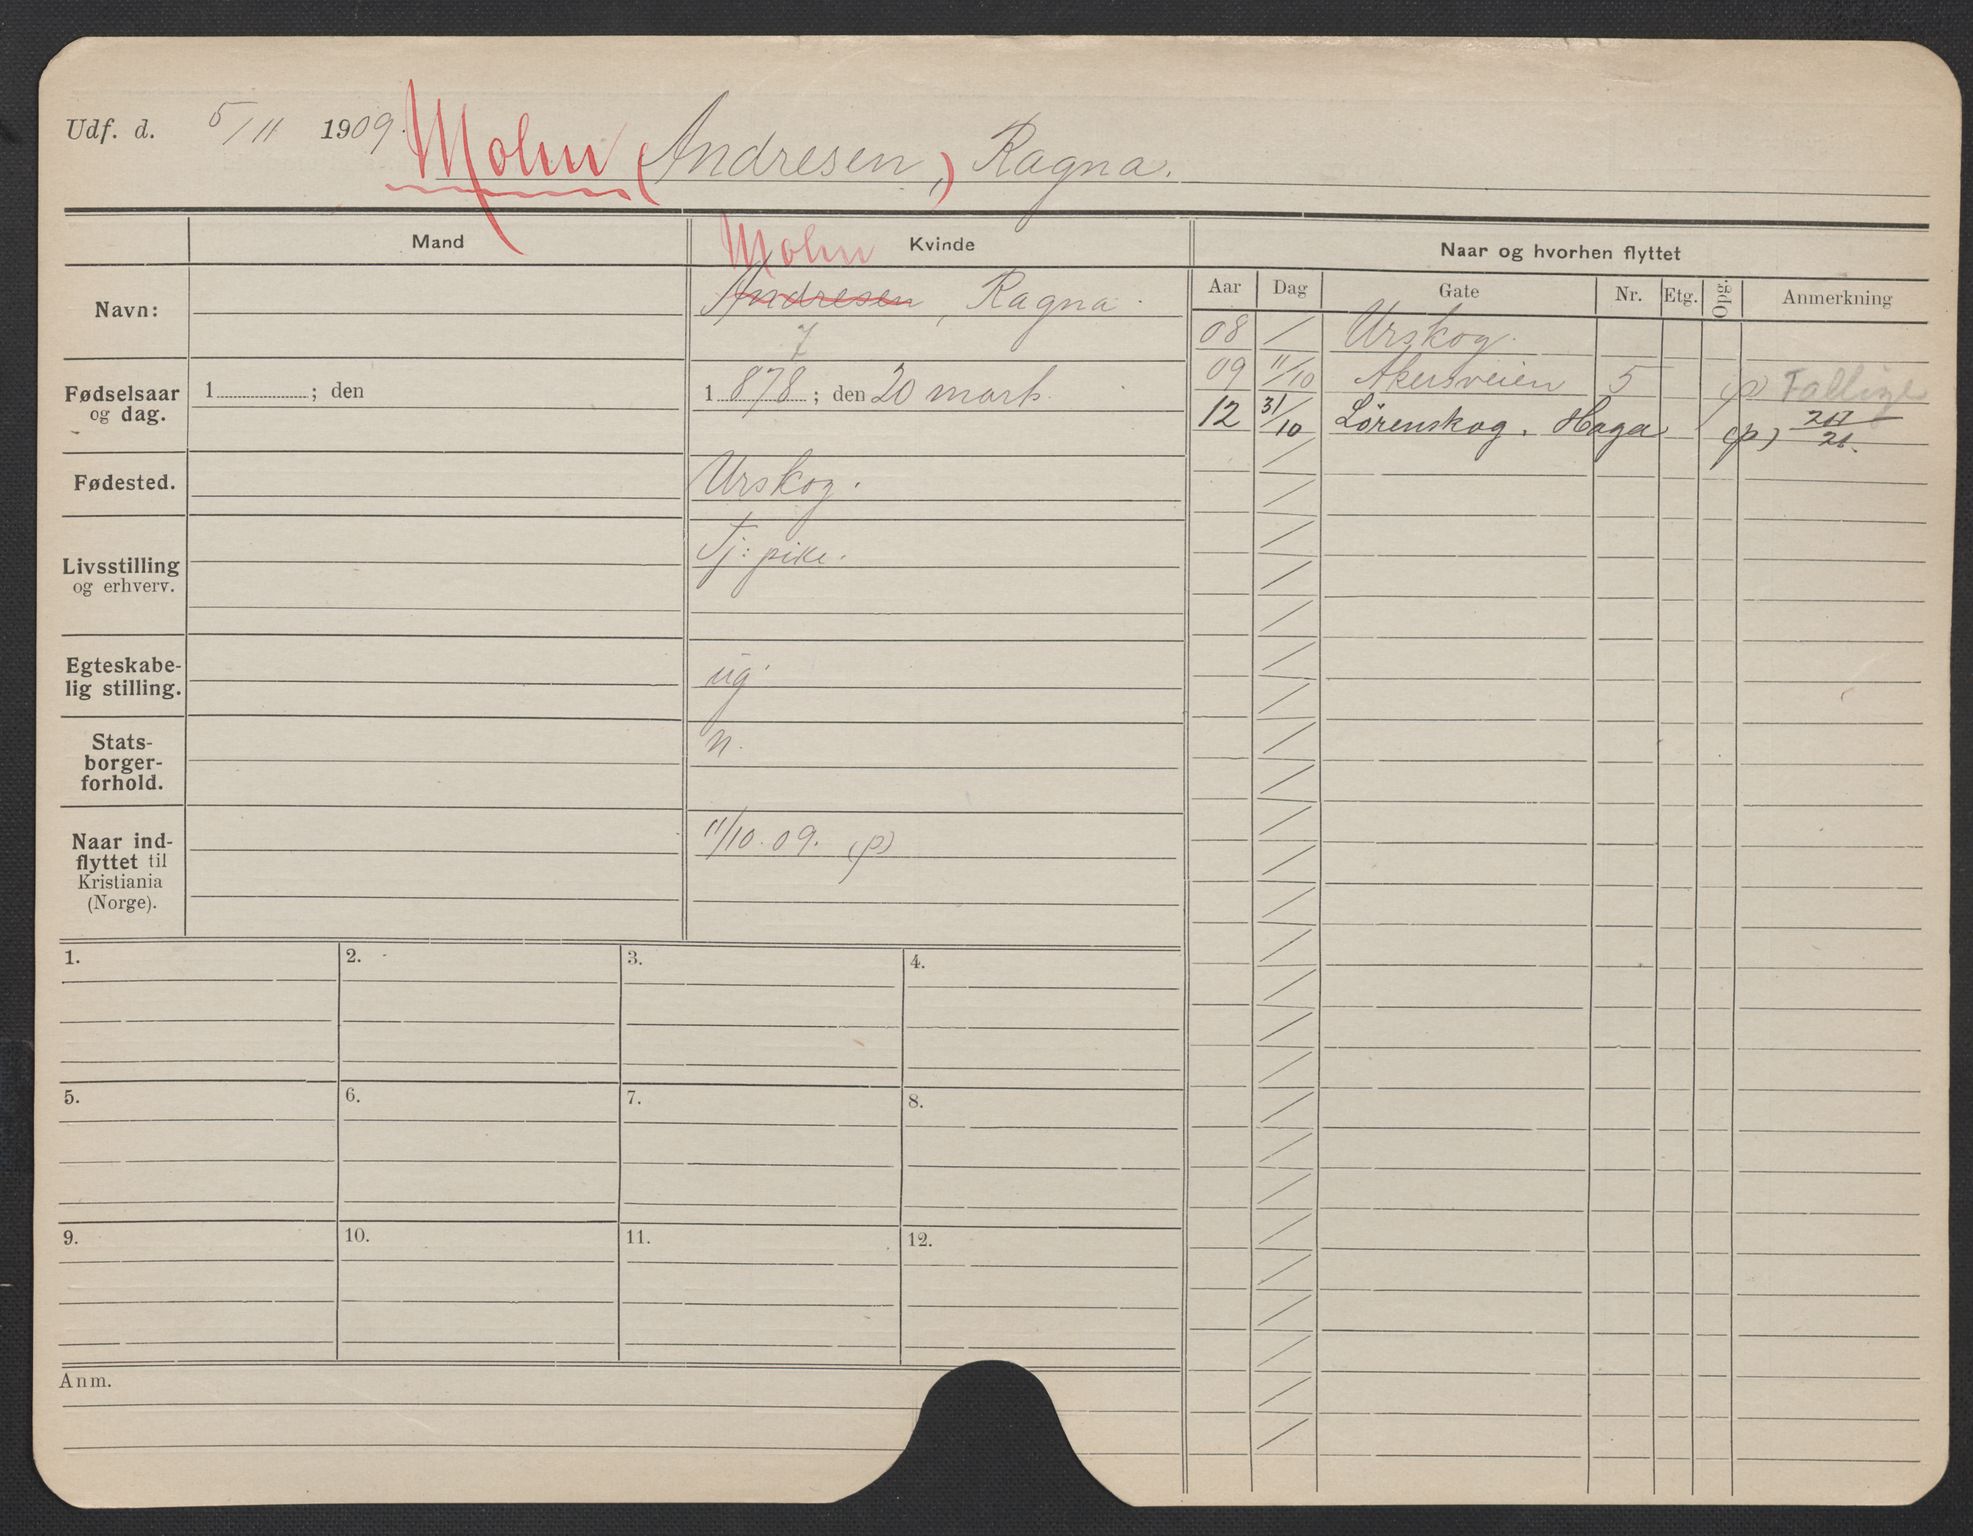 Udf. d. 5/11 1909. Mohn (Andresen,) Ragna.
Mand
Mohn Kvinde
Naar og hvorhen flyttet
Navn:
Andresen, Ragna.
Aar Dag Gate Nr. Etg. Opg. Anmerkning
08 / Urskog.
09 11/10 Akersveien 5 (p)
12 31/10 Lørenskog, Haga (p)
Fødselsaar
og dag.
1 ; den
1 878 ; den 20 mars.
Fødested.
Urskog.
Livsstilling
og erhverv.
Tj: pike.
Egteskabe-
lig stilling.
ug
Stats-
borger-
forhold.
n.
Naar ind-
flyttet til
Kristiania
(Norge).
11/10.09. (p)
1. 2. 3. 4.
5. 6. 7. 8.
9. 10. 11. 12.
Anm.